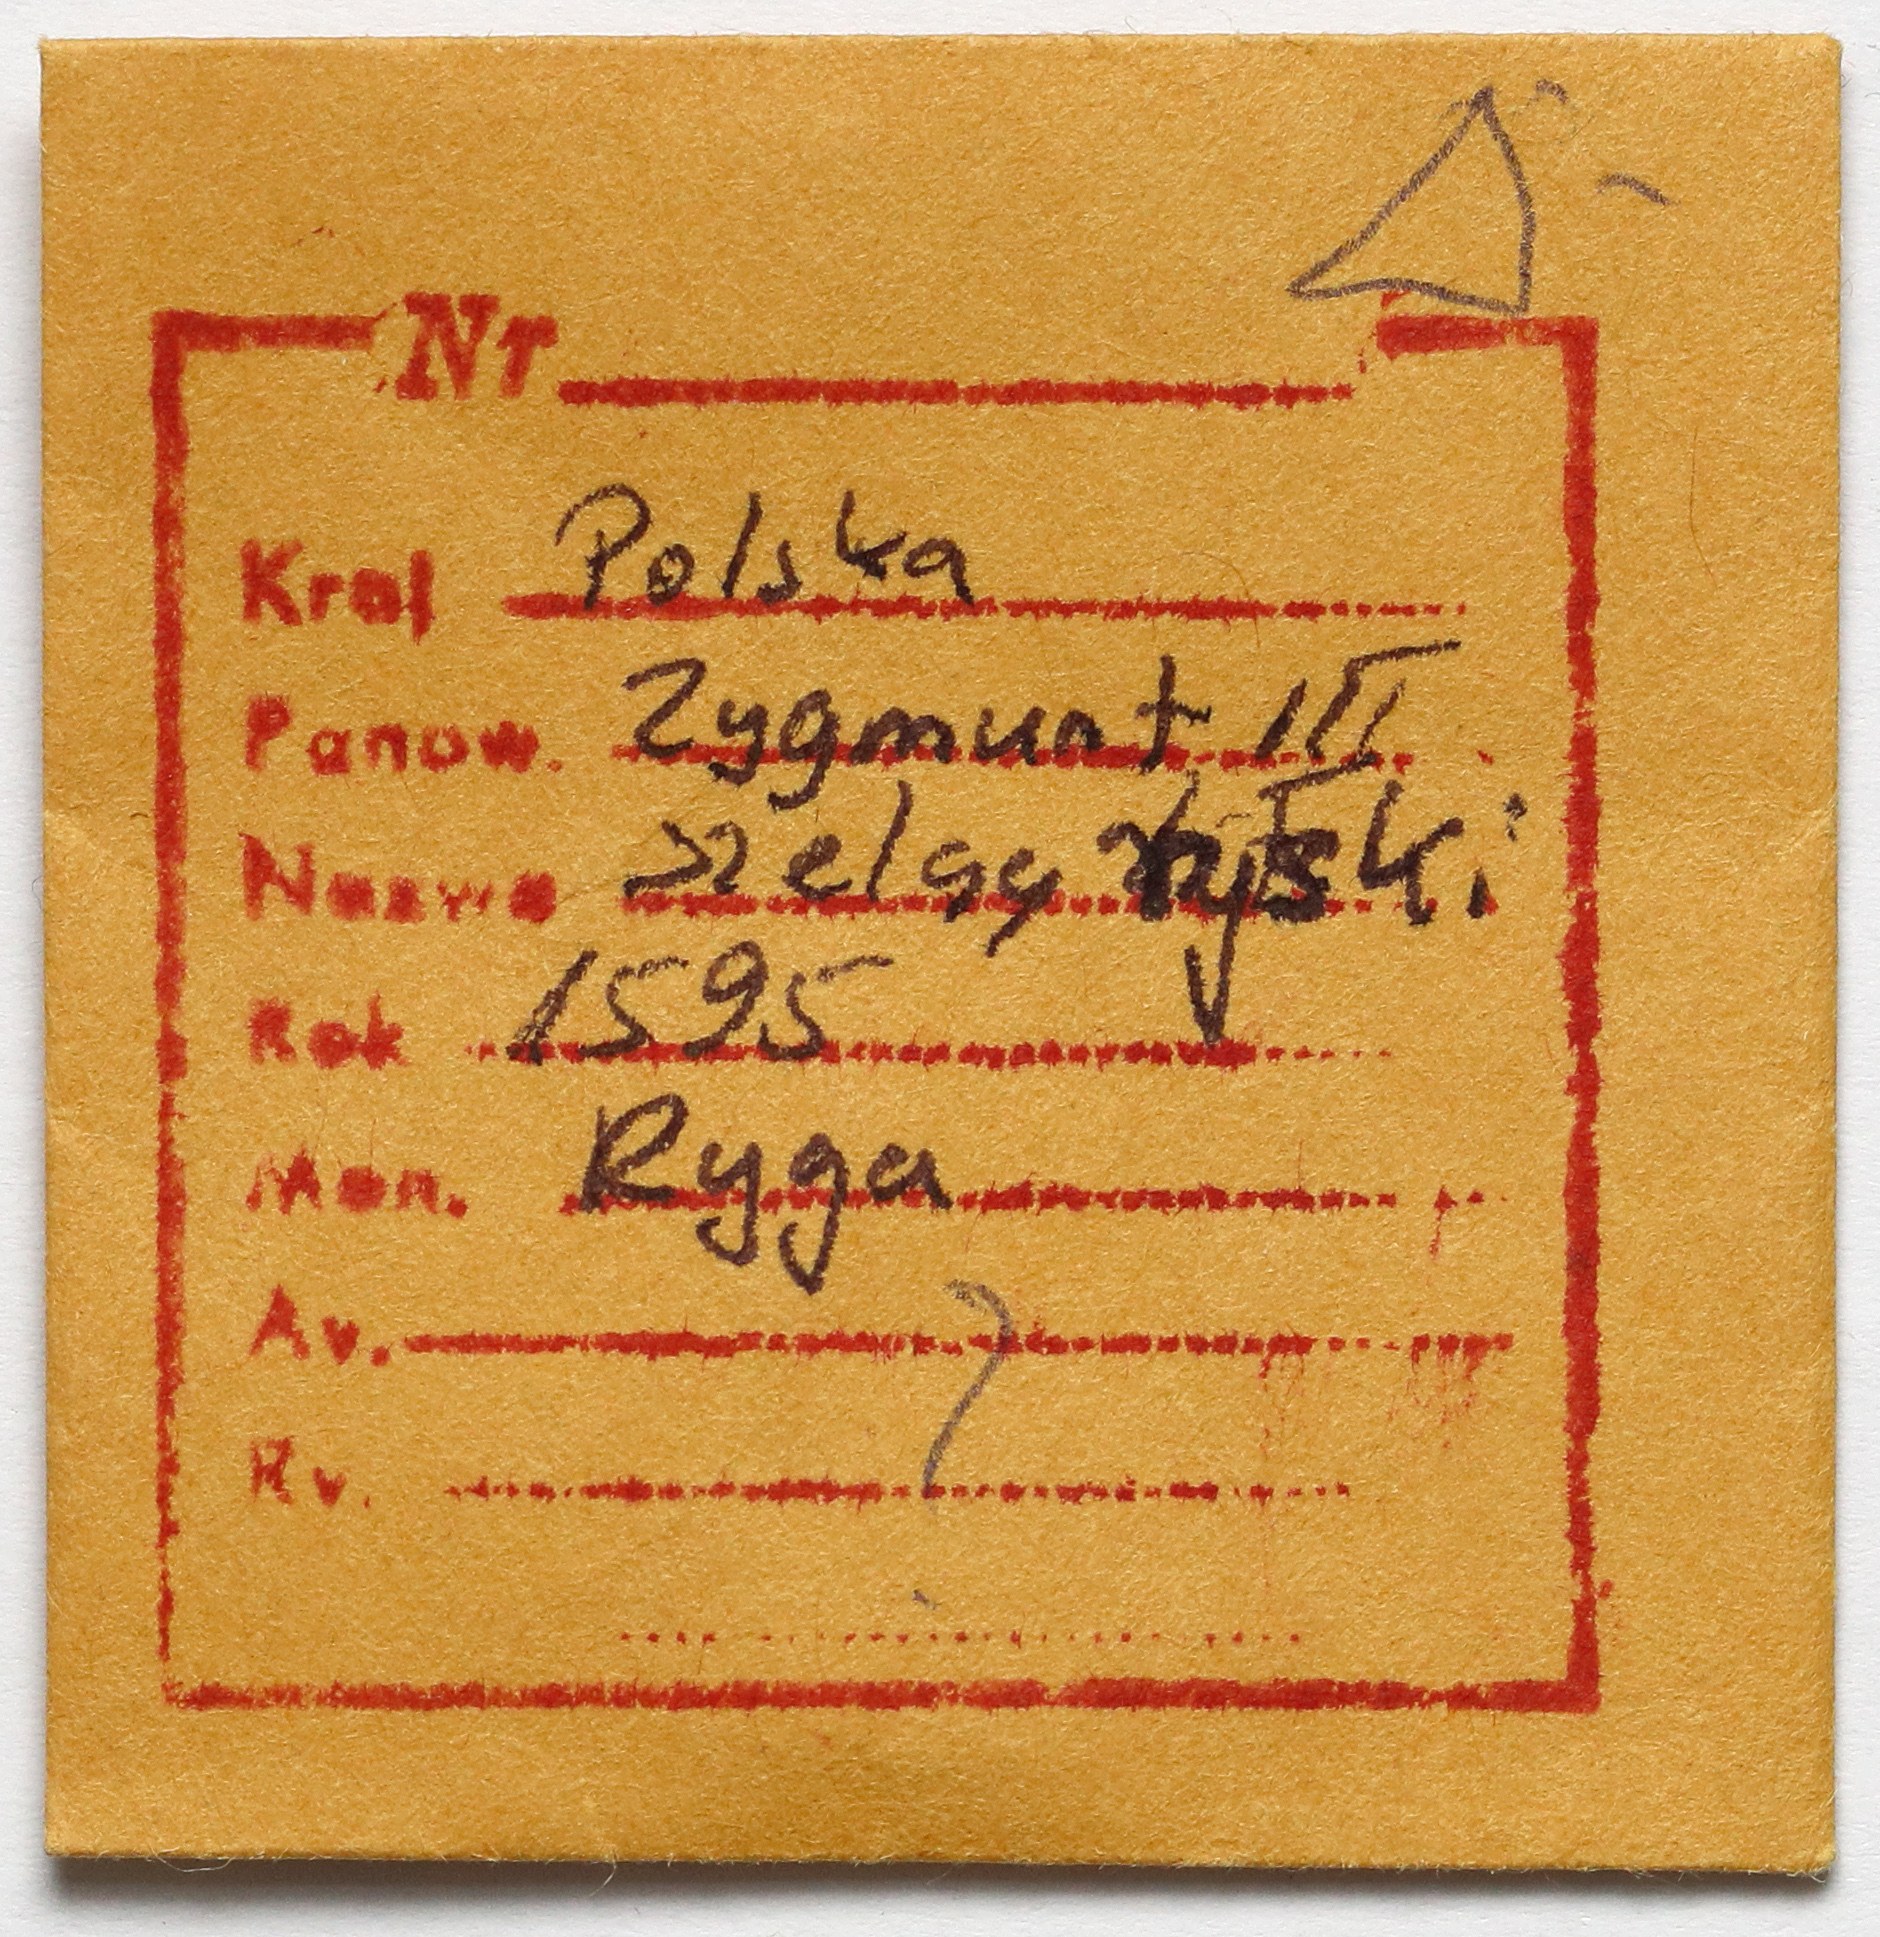 Nr
Kraj Polska
Panow. Zygmunt III
Nazwa szeląg ryski
Rok 1595
Men. Ryga
Av. ?
Rv.